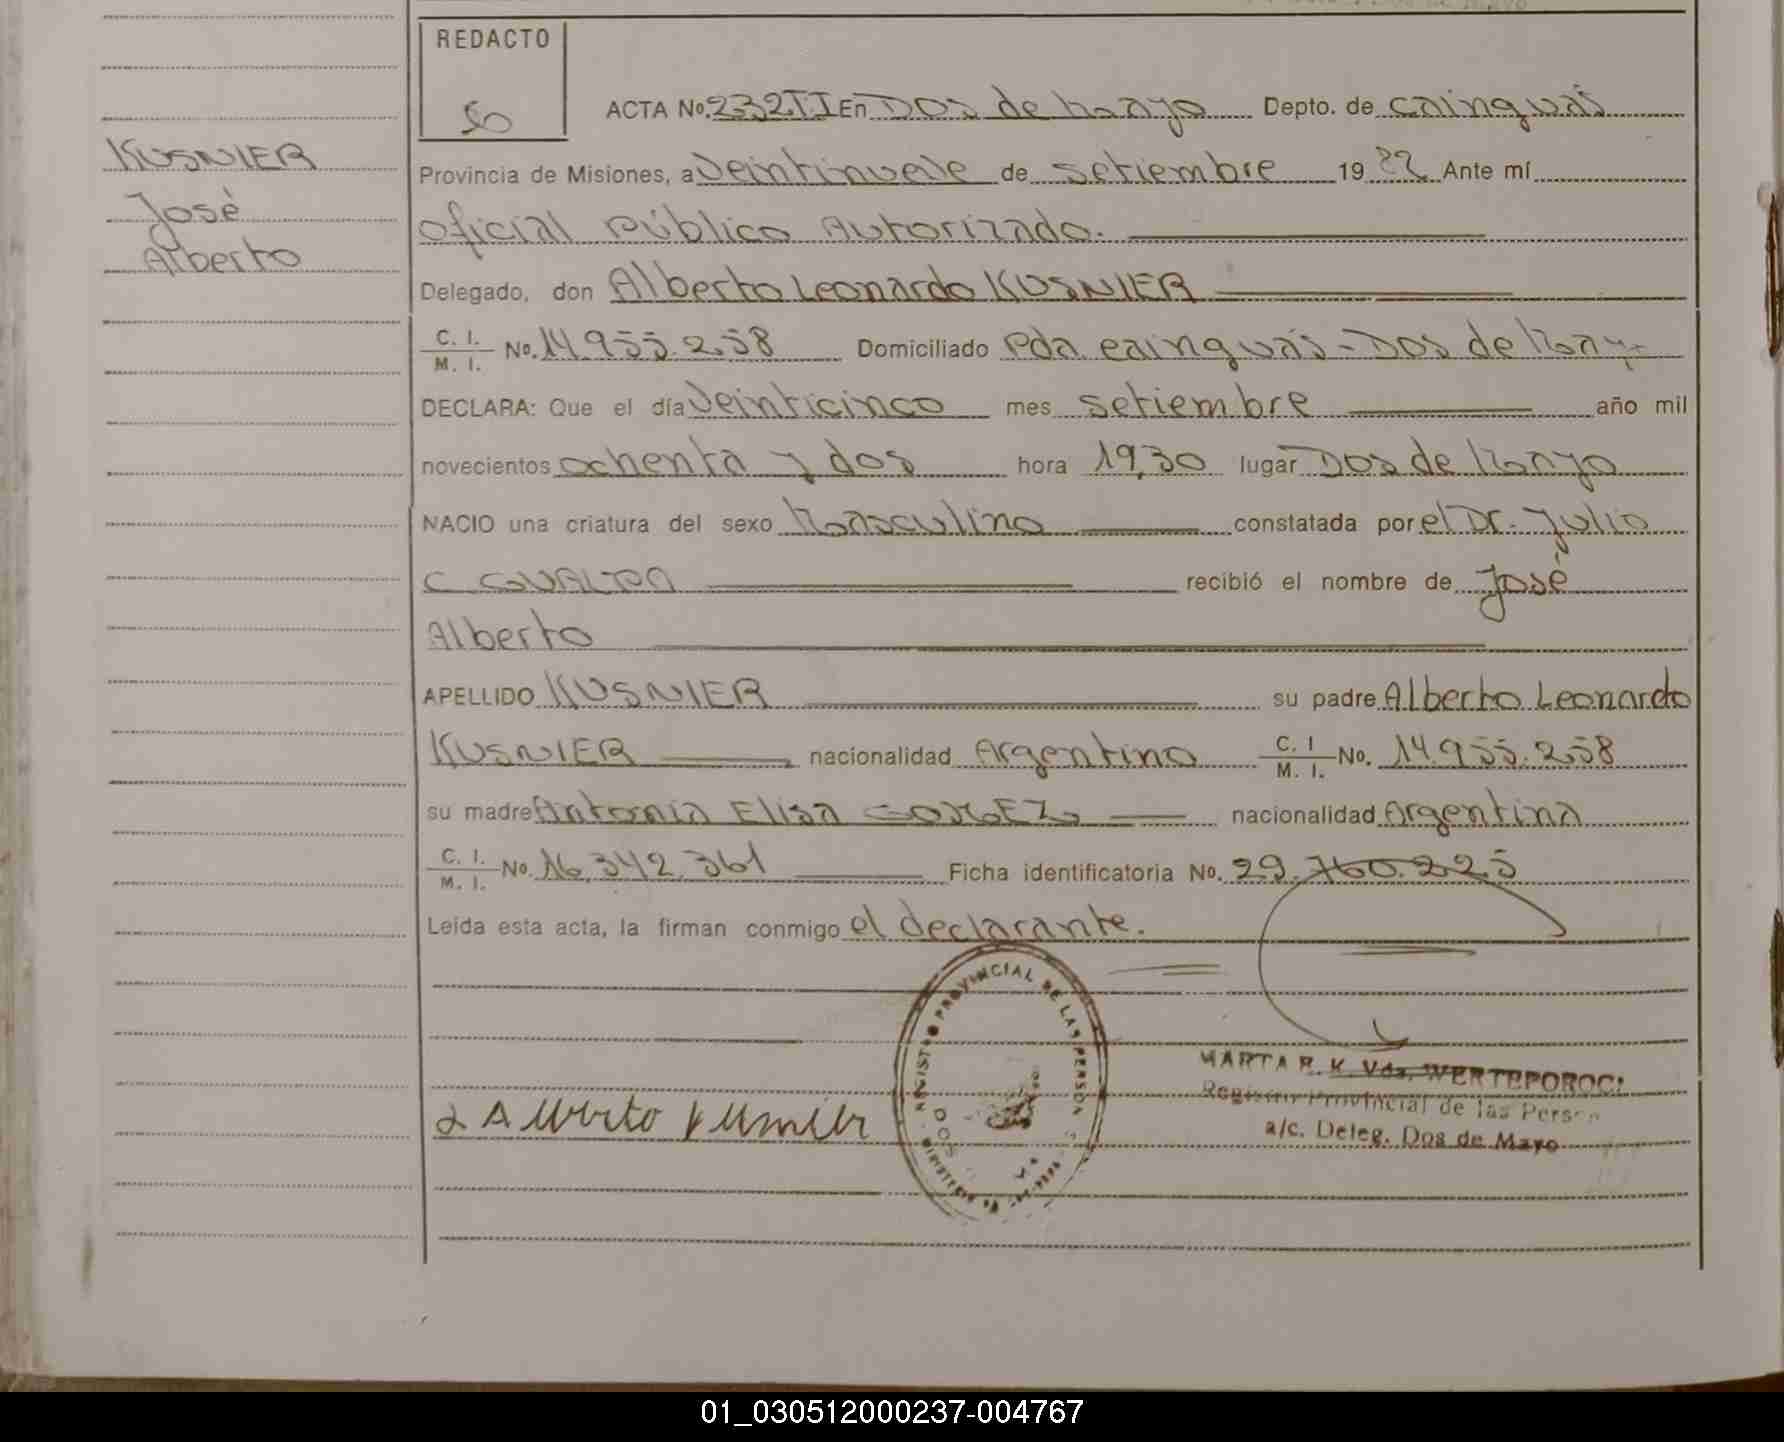 REDACTO
ACTA No. 232 TI En Dos de Mayo Depto. de Cainguás
KUSNIER
José
Alberto
Provincia de Misiones, a Veintinueve de Setiembre 1982 Ante mí
Oficial Público Autorizado.
Delegado, don Alberto Leonardo KUSNIER
C. I. M. I. No. 14.955.258 Domiciliado Pda cainguás - Dos de Mayo
DECLARA: Que el día Veinticinco mes Setiembre año mil
novecientos ochenta y dos hora 19,30 lugar Dos de Mayo
NACIO una criatura del sexo Masculino constatada por el Dr. Julio
C GUALTPA recibió el nombre de José
Alberto
APELLIDO KUSNIER su padre Alberto Leonardo
KUSNIER nacionalidad Argentino C. I M. I. No. 14.955.258
su madre Antonia Elisa GOMEZ nacionalidad Argentina
C. I. M. I. No. 16.342.361 Ficha identificatoria No. 29.760.225
Leída esta acta, la firman conmigo el declarante.
PROVINCIAL DE LAS PERSON
DOS
MARTA R. K. Vda. WERTEPOROC
Registro Provincial de las Person
a/c. Deleg. Dos de Mayo
Alberto Kusnier
01_030512000237-004767